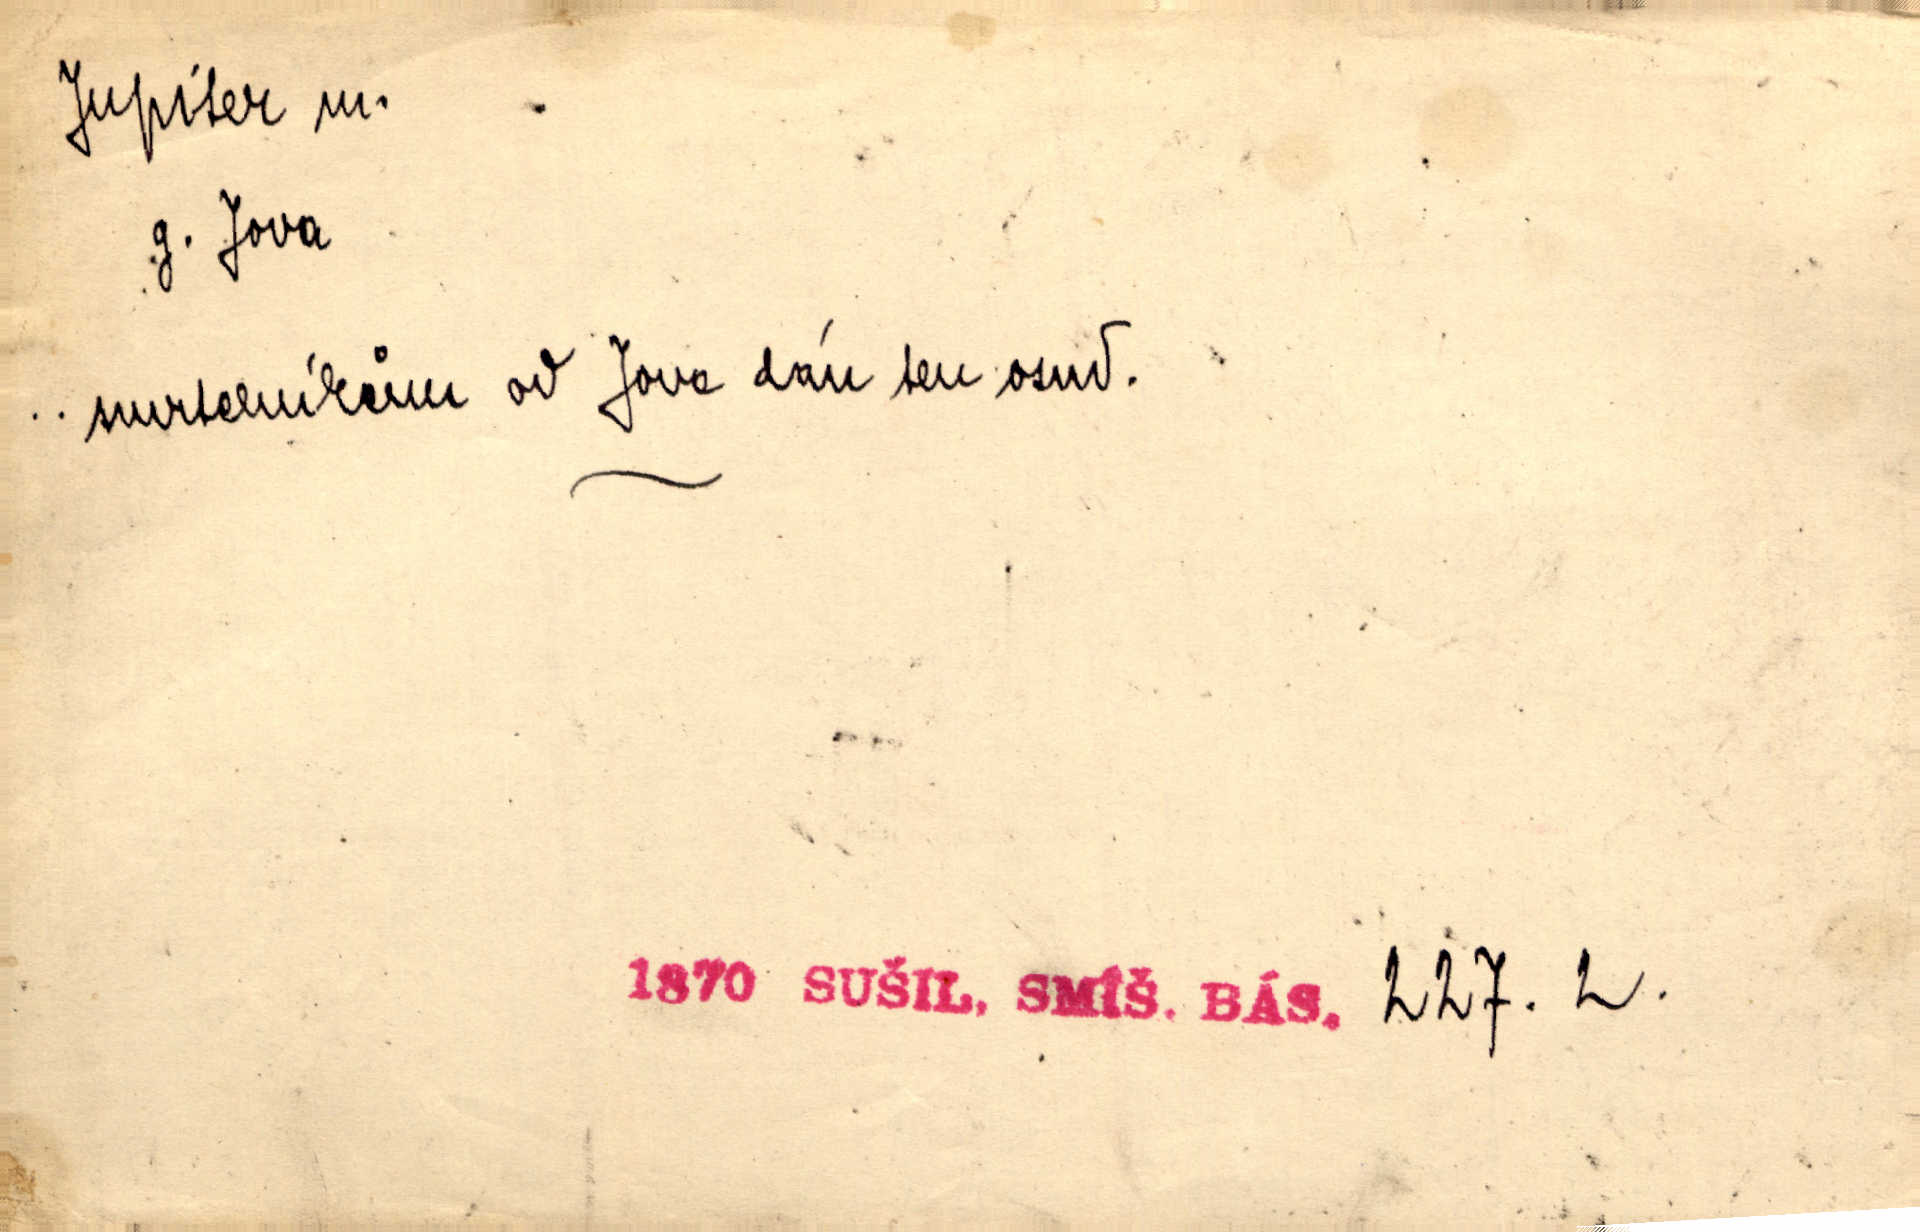 Jupiter m.
g. Jova
.. smrtelníkům od Jova dán ten osud.
1870 SUŠIL, SMÍŠ. BÁS. 227. 2.